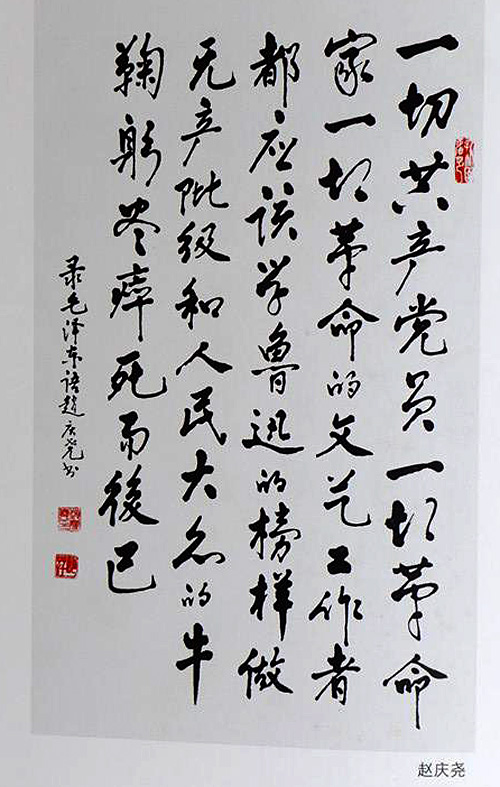 一切共产党员一切革命
家一切革命的文艺工作者
都应该学鲁迅的榜样做
无产阶级和人民大众的牛
鞠躬尽瘁死而後已
录毛泽东语赵庆尧书
赵庆尧